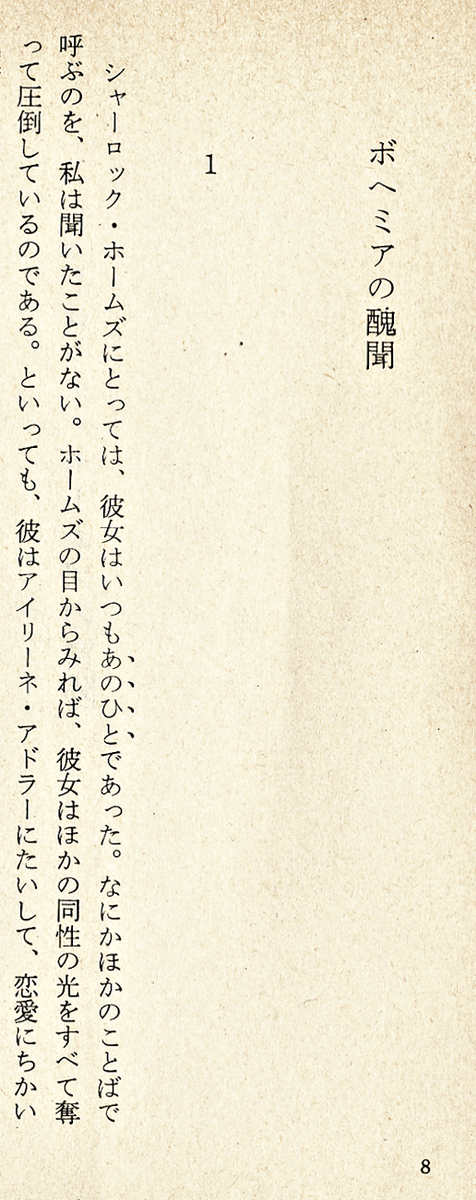 ボヘミアの醜聞
1
シャーロック・ホームズにとっては、彼女はいつもあのひとであった。なにかほかのことばで
呼ぶのを、私は聞いたことがない。ホームズの目からみれば、彼女はほかの同性の光をすべて奪
って圧倒しているのである。といっても、彼はアイリーネ・アドラーにたいして、恋愛にちかい
8